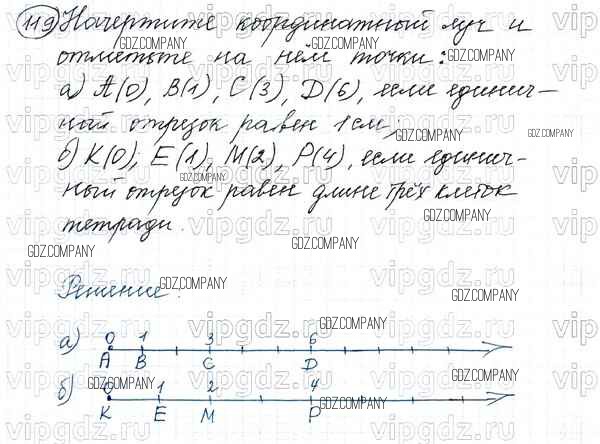 119 Начертите координатный луч и
отметьте на нём точки:
а) A(0), B(1), C(3), D(6), если единич-
ный отрезок равен 1 см;
б) K(0), E(1), M(2), P(4), если единич-
ный отрезок равен длине трёх клеток
тетради.
Решение:
а) 0 1 3 6
A B C D
б) 0 1 2 4
K E M P
GDZ.COMPANY
vipgdz.ru